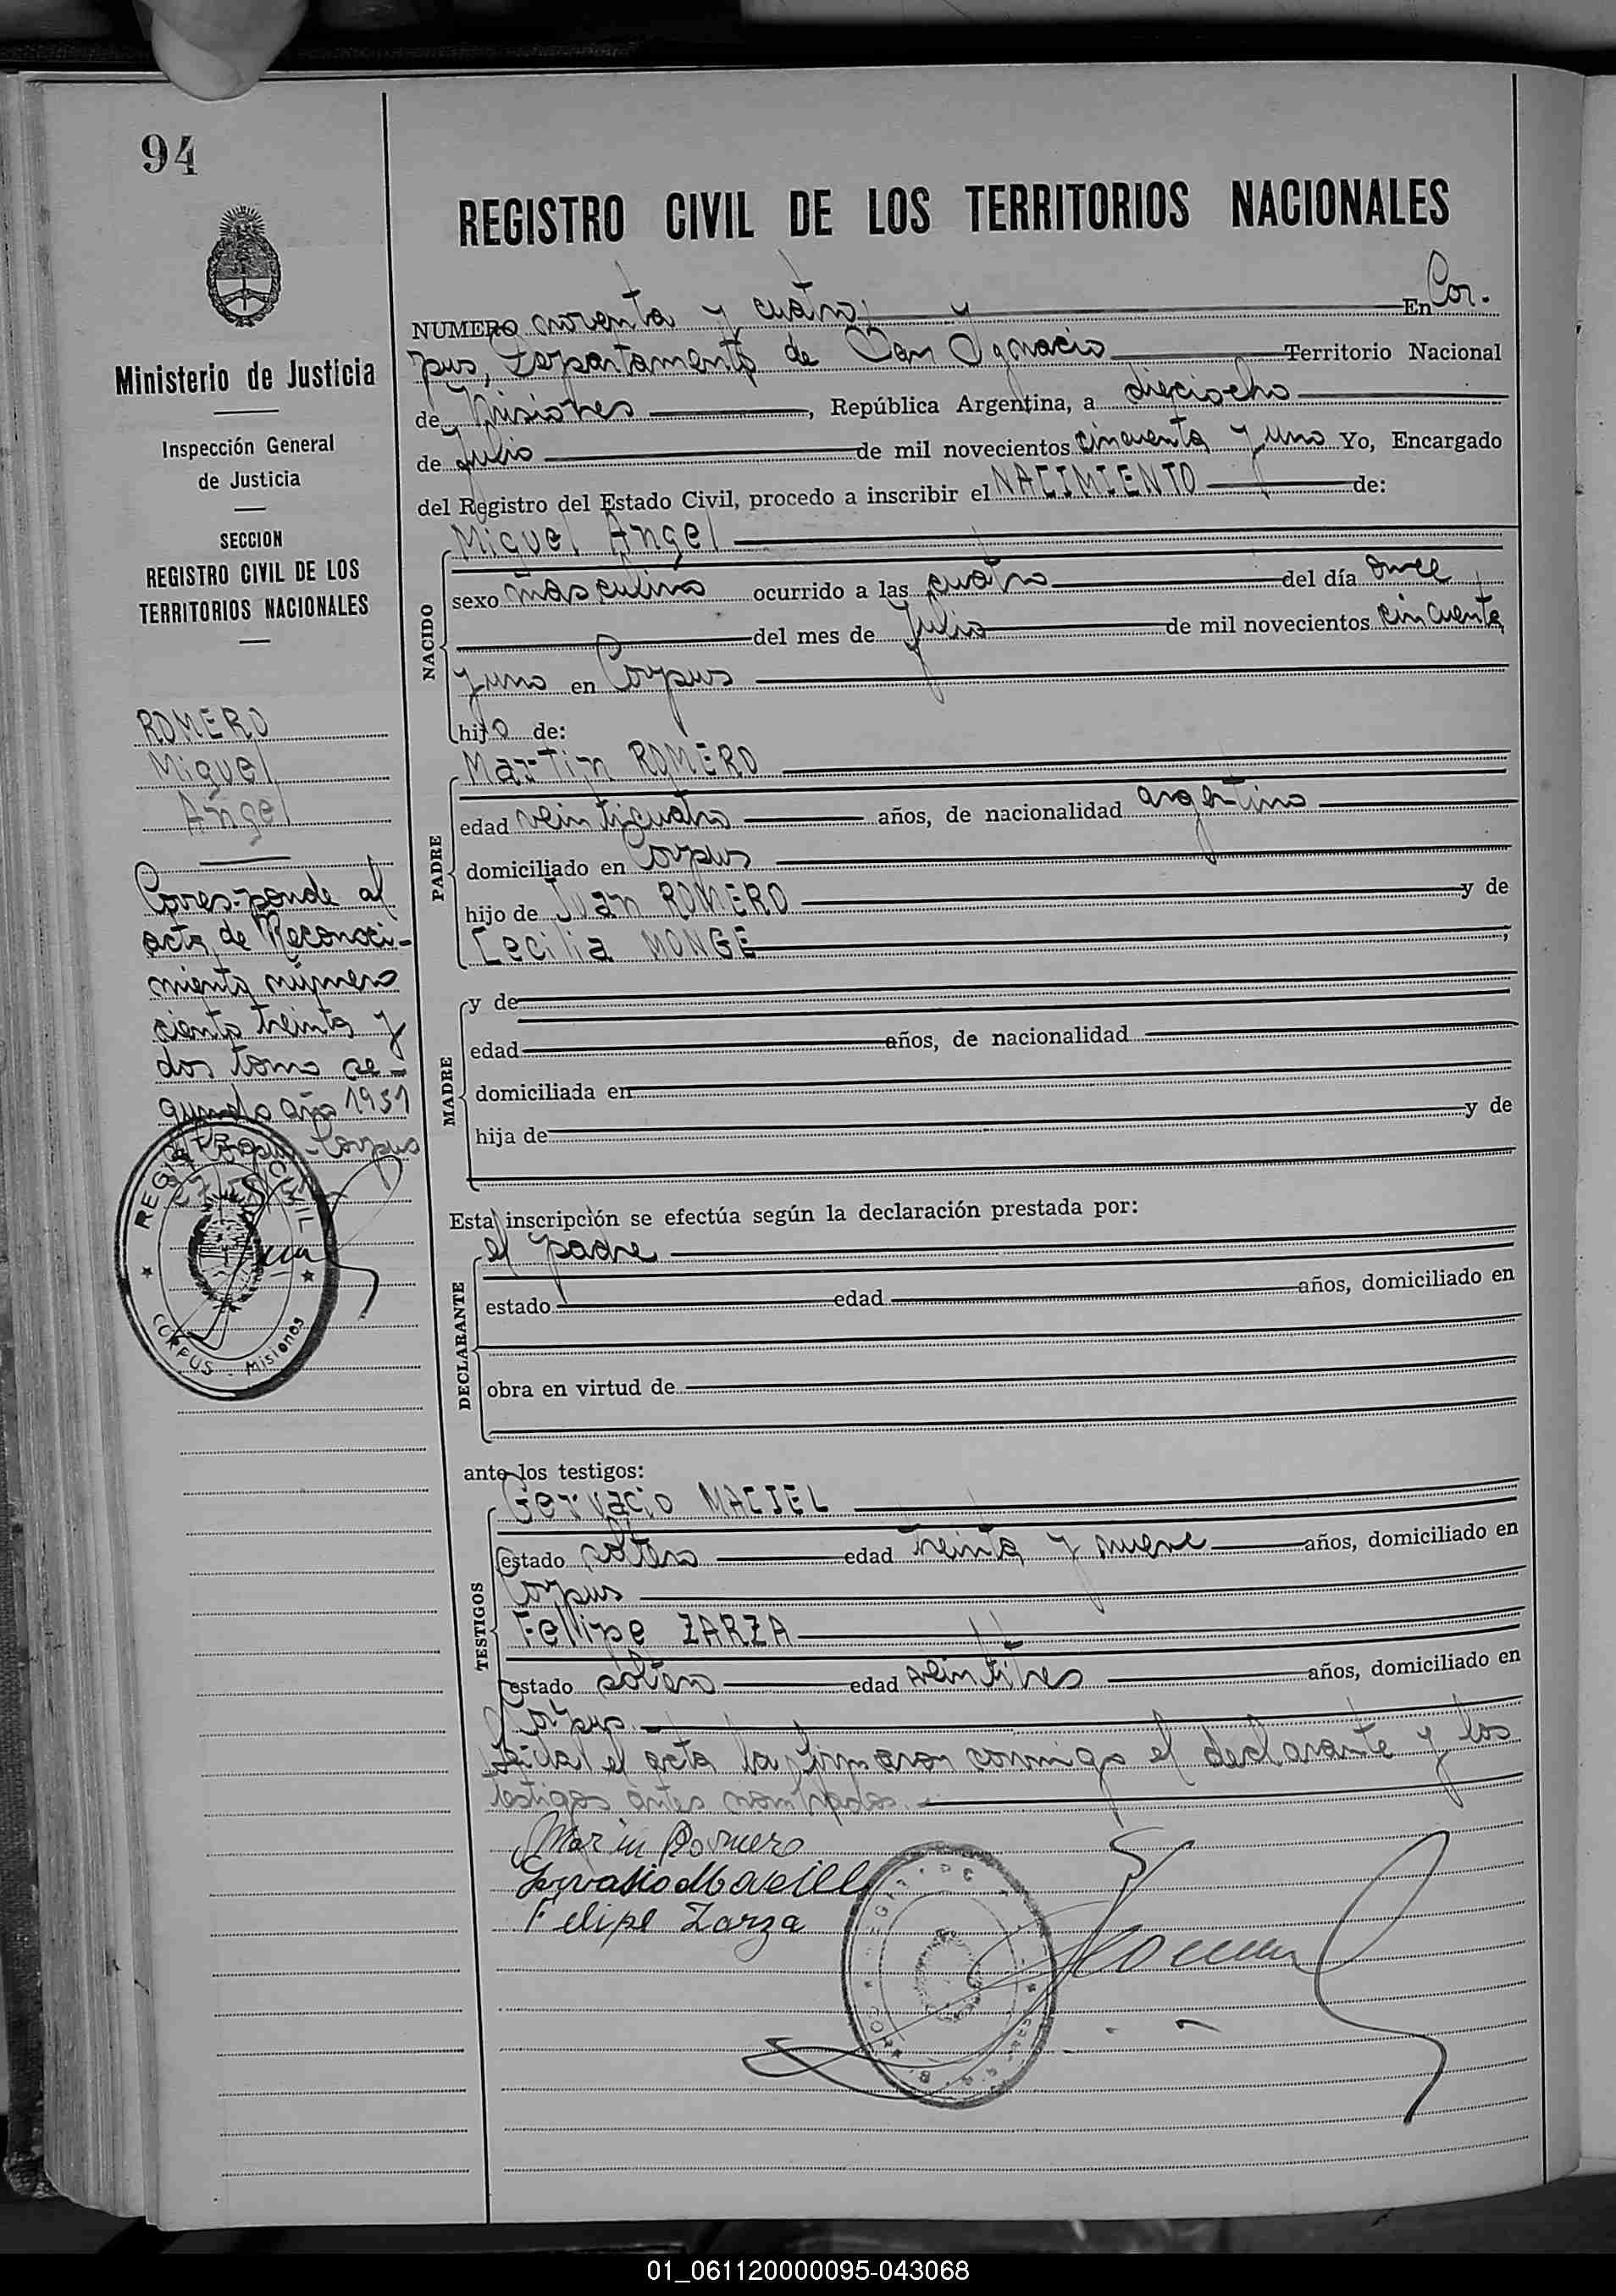 94
Ministerio de Justicia
Inspección General
de Justicia
SECCION
REGISTRO CIVIL DE LOS
TERRITORIOS NACIONALES
ROMERO
Miguel
Angel
Corresponde al
acta de Reconoci-
miento número
ciento treinta y
dos tomo se-
gundo año 1951
Corpus
REGISTRO CIVIL
CORPUS - Misiones
REGISTRO CIVIL DE LOS TERRITORIOS NACIONALES
NUMERO noventa y cuatro En Cor-
pus, Departamento de San Ignacio Territorio Nacional
de Misiones, República Argentina, a dieciocho
de Julio de mil novecientos cincuenta y uno Yo, Encargado
del Registro del Estado Civil, procedo a inscribir el NACIMIENTO de:
NACIDO
Miguel Angel
sexo masculino ocurrido a las cuatro del día once
del mes de Julio de mil novecientos cincuenta
y uno en Corpus
hijo de:
PADRE
Martin ROMERO
edad veinticuatro años, de nacionalidad argentino
domiciliado en Corpus
hijo de Juan ROMERO y de
Cecilia MONGE,
MADRE
y de
edad años, de nacionalidad
domiciliada en
hija de y de
Esta inscripción se efectúa según la declaración prestada por:
DECLARANTE
el padre
estado edad años, domiciliado en
obra en virtud de
ante los testigos:
TESTIGOS
Gervacio MACIEL
estado soltero edad treinta y nueve años, domiciliado en
Corpus
Felipe ZARZA
estado soltero edad veintitres años, domiciliado en
Corpus.
Leida el acta la firmaron conmigo el declarante y los
testigos antes nombrados.
Marin Romero
Gervasio Maciel
Felipe Zarza
01_061120000095-043068